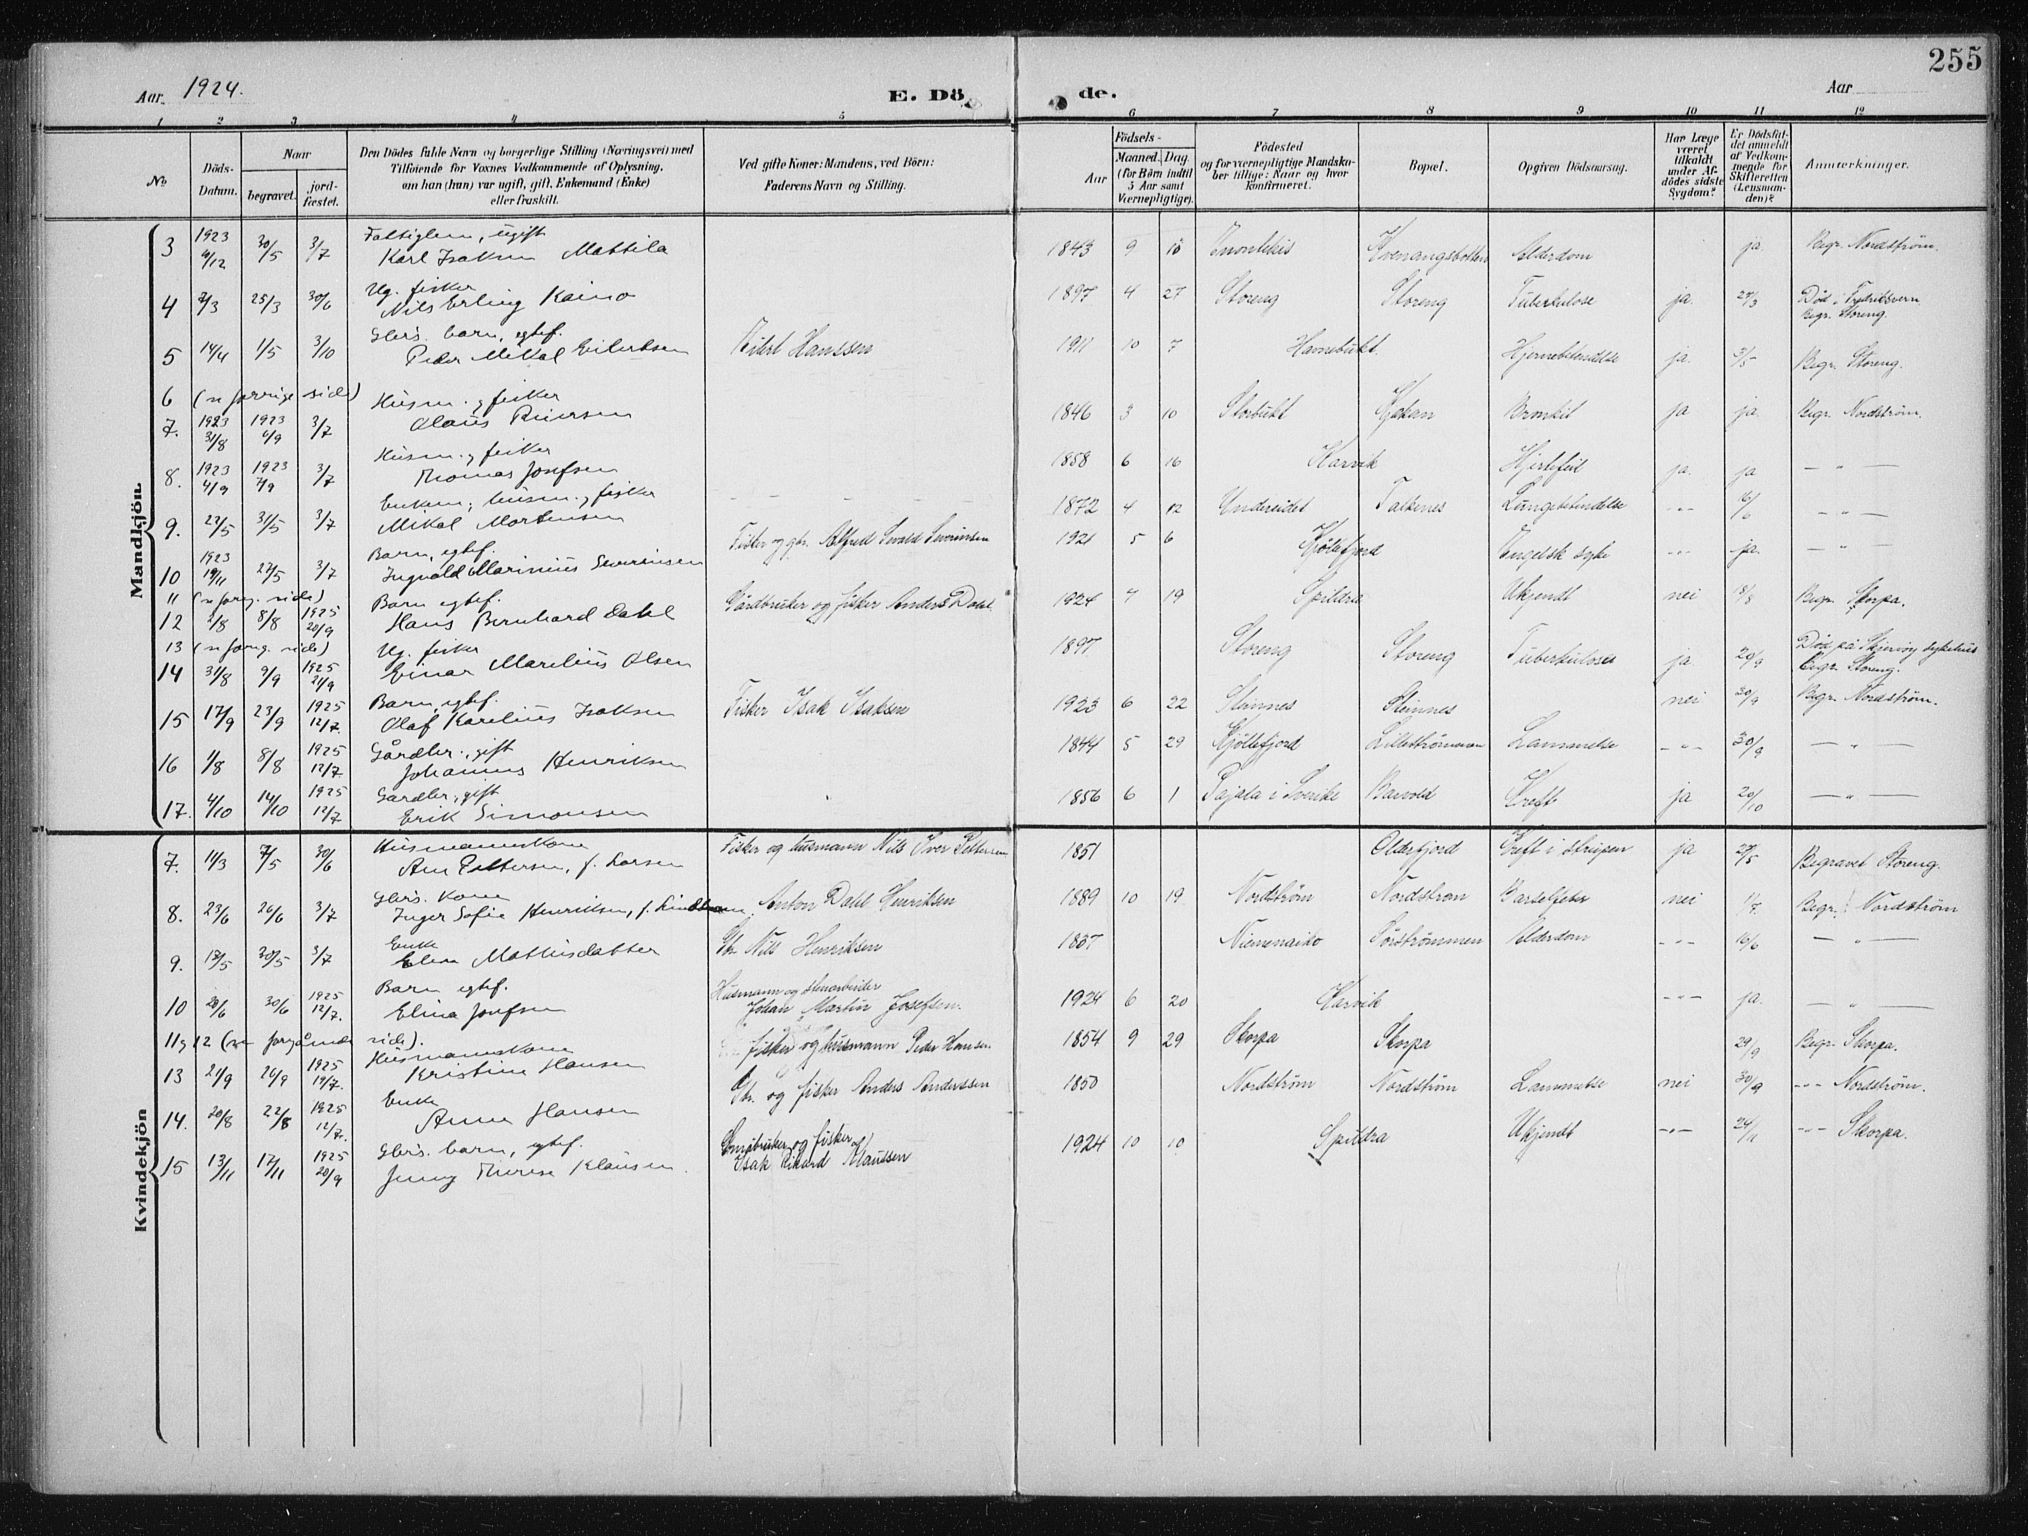 255
Aar 1924.
E. Döde.
Aar
1 2 3 4 5 6 7 8 9 10 11 12
No.
Döds-Datum.
Naar
begravet.
jordfæstet.
Den Dödes fulde Navn og borgerlige Stilling (Næringsvei) med
Tilföiende for Voxnes Vedkommende af Oplysning,
om han (hun) var ugift, gift, Enkemand (Enke)
eller fraskilt.
Ved gifte Koner: Mandens, ved Börn:
Faderens Navn og Stilling.
Födsels-
Aar
Maaned. Dag
(for Börn indtil
5 Aar samt
Værnepligtige).
Födested
og for værnepligtige Mandskaber tillige: Naar og hvor
konfirmeret.
Bopæl.
Opgiven Dödsaarsag.
Har Læge
været
tilkaldt
under Afdödes sidste
Sygdom?
Er Dödsfaldet anmeldt
af Vedkommende for
Skifteretten
(Lensmanden)?
Anmærkninger.
Mandkjön.
3 1923 6/12 30/5 3/7 Fattiglem, ugift Karl Isaksen Mattila 1843 9 10 Enontekis Kvenangsbotten Alderdom ja. Begr. Nordstrøm.
4 7/3 25/3 30/6 Ug. fisker Nils Erling Kaino 1897 4 27 Storeng Storeng Tuberkulose ja 27/3 Død i Fredriksvern Begr. Storeng.
5 14/4 1/5 3/10 Gbrs. barn, egtef. Peder Mikal Eilertsen Eilert Hanssen 1911 10 7 Havnebukt. Hjernebetendelse ja. 3/5 Begr. Storeng.
6 (se forrige side)
7. 1923 31/8 1923 6/9 3/7 Husm. og fisker Olaus Reiersen 1846 3 10 Storbukt Kjækan Bronkit ja ja. Begr. Nordstrøm.
8. 1923 4/9 1923 7/9 3/7 Husm. og fisker Thomas Josefsen 1858 6 16 Karvik Hjertefeil ja. ja — " —
9. 23/5 31/5 3/7 Enkem; husm. og fisker Mikal Mortensen — — — 1872 4 12 Undereidet Talkenes Lungebetendelse -"- 16/6 — " —
10 1923 19/11 27/5 3/7 Barn, egtef. Ingvald Marinius Severinsen Fisker og gbr. Alfred Sevald Severinsen 1921 5 6 Kjøllefjord Engelsk syke -"- ja. — " —
11 (se forrg. side)
12 2/8 8/8 1925 20/9 Barn egtef. Hans Bernhard Dahl Gårdbruker og fisker Anders Dahl. 1924 7 19 Spildra Ukjendt nei 18/8 Begr. Skorpa.
13 (se forrg. side)
14 31/8 9/9 1925 21/9 Ug. fisker Einar Marelius Olsen 1897 Storeng Storeng Tuberkulose ja 20/9 Død på Skjervøy sykehus Begr. Storeng.
15 17/9 23/9 1925 12/7. Barn, egtef. Olaf Karelius Isaksen Fisker Isak Isaksen 1923 6 22 Steinnes Steinnes nei 30/9 Begr. Nordstrøm.
16 1/8 8/8 1925 12/7. Gårdbr., gift Johannes Henriksen 1844 5 29 Kjøllefjord Lillestrømmen Lammelse -"- 30/9 — " —
17. 4/10 14/10 1925 12/7 Gardbr., gift Erik Simonsen 1856 6 1 Pajala i Sverike Barvold Kreft ja 20/10 — " —
Kvindekjön
7. 11/3 7/5 30/6 Husmannskone Ane Pettersen, f. Larsen Fisker og husmann Nils Iver Pettersen 1851 Olderfjord Kreft i strupen ja 27/5 Begravet Storeng.
8. 23/6 26/6 3/7 Gbrs. kone Inger Sofie Henriksen, f. Anton Dahl Henriksen 1889 10 19 Nordstrøm Nordstrøm Barselfeber nei 1/7. Begr. Nordstrøm
9. 13/5 30/5 3/7 Enke Elen Mathisdatter Gbr. Nils Henriksen 1837 Niemenaiko Sørstrømmen Alderdom -"- 16/6 — " —
10 20/6 30/6 1925 12/7. Barn egtef. Elina Josefsen Husmann og stenarbeider Johan Martin Josefsen. 1924 6 20 Karvik -"- ja. — " —
11 og 12 (se foregående side).
13 21/9 26/9 1925 19/7. Husmannskone Kristine Hansen fisker og husmann Peder Hansen 1854 9 29 Skorpa Skorpa 29/9 Begr. Skorpa.
14. 20/8 22/8 1925 12/7. Enke Anne Hansen Gbr. og fisker Anders Anderssen 1850 Nordstrøm Nordstrøm Lammelse nei 30/9 -"- Nordstrøm.
15 13/11 17/11 1925 20/9 Gbrs. barn, egtef. Jenny Therese Klausen. Småbruker og fisker Isak Rikard Klaussen 1924 10 10 Spildra Ukjendt -"- 24/11 -"- Skorpa.